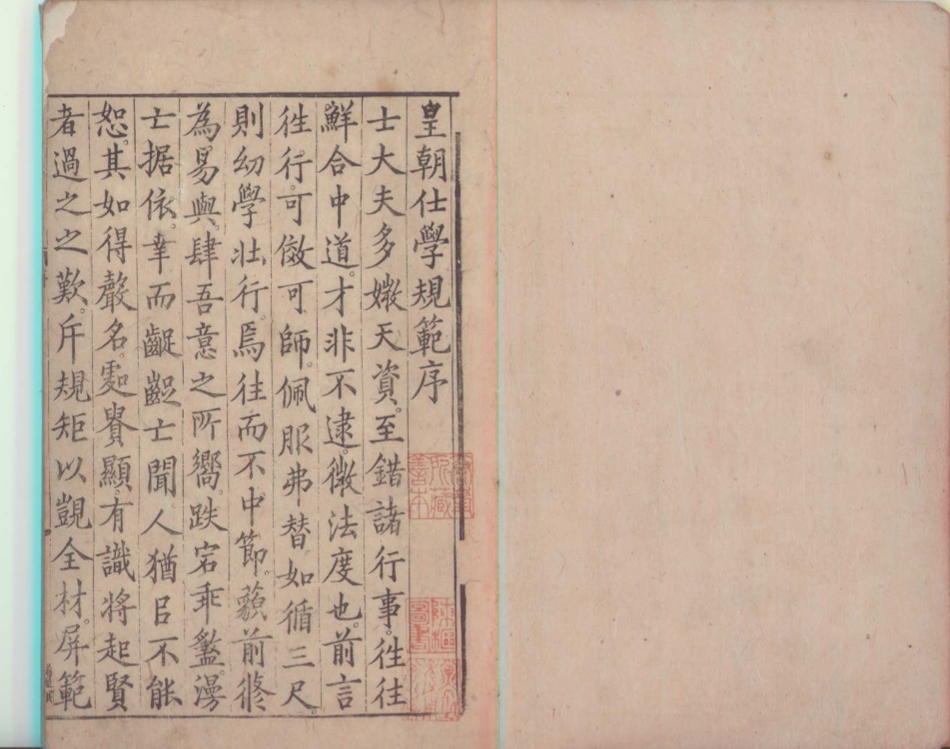 皇朝仕學規範序
士大夫多媺天資。至錯諸行事。徃徃
鮮合中道。才非不逮。微法度也。前言
徃行。可儆可師。佩服弗替。如循三尺。
則幼學壯行。焉往而不中節。藐前修
為易與。肆吾意之所嚮。跌宕乖盭。漫
士据依。幸而齪齪士聞人猶㠯不能
恕。其如得聲名。䖏貴顯。有識將起賢
者過之之歎。斥規矩以覬全材。屏範